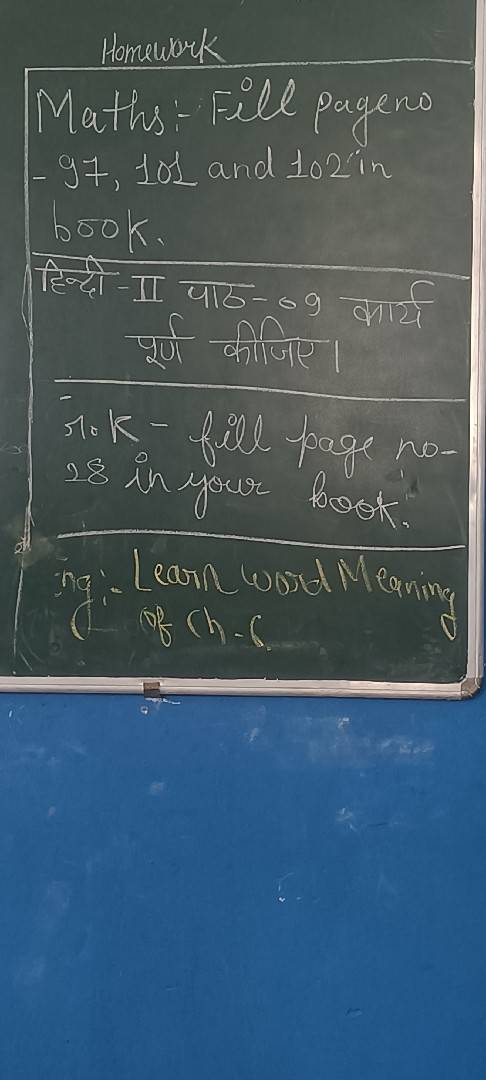 Homework
Maths:- Fill pageno
- 97, 101 and 102 in
book.
हिन्दी - II पाठ - 09 कार्य
पूर्ण कीजिए।
K - fill page no-
28 in your book.
ng:- Learn word Meaning
of Ch-6